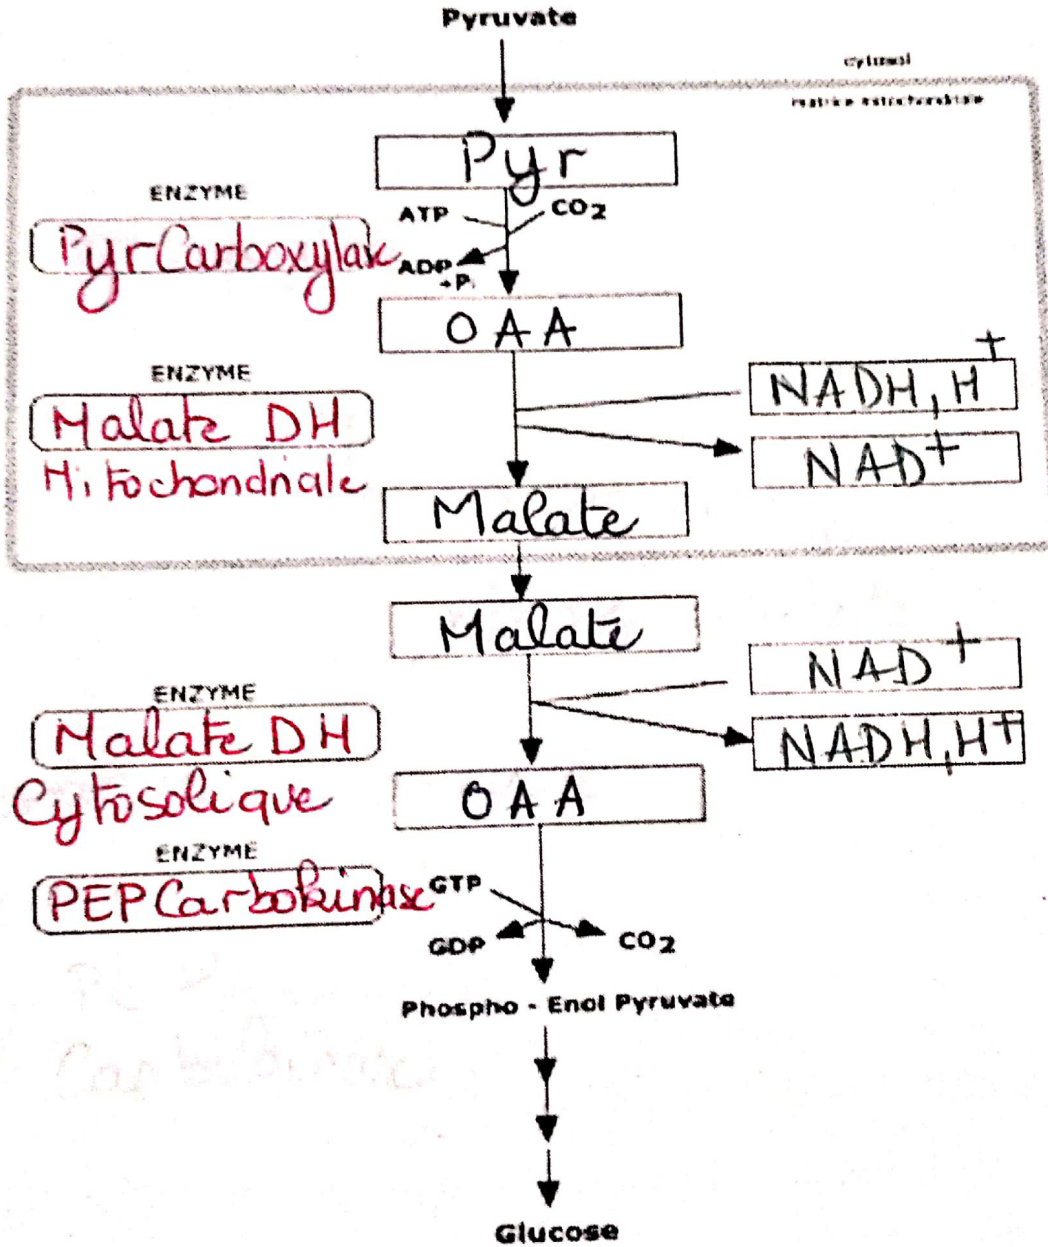 Pyruvate
cytosol
matrice mitochondriale
Pyr
ENZYME
ATP
CO2
PyrCarboxylase
ADP
+Pi
OAA
ENZYME
NADH, H+
Malate DH
NAD+
Mitochondriale
Malate
Malate
NAD+
ENZYME
Malate DH
NADH, H+
Cytosolique
OAA
ENZYME
PEP Carbokinase
GTP
GDP
CO2
Phospho - Enol Pyruvate
Glucose